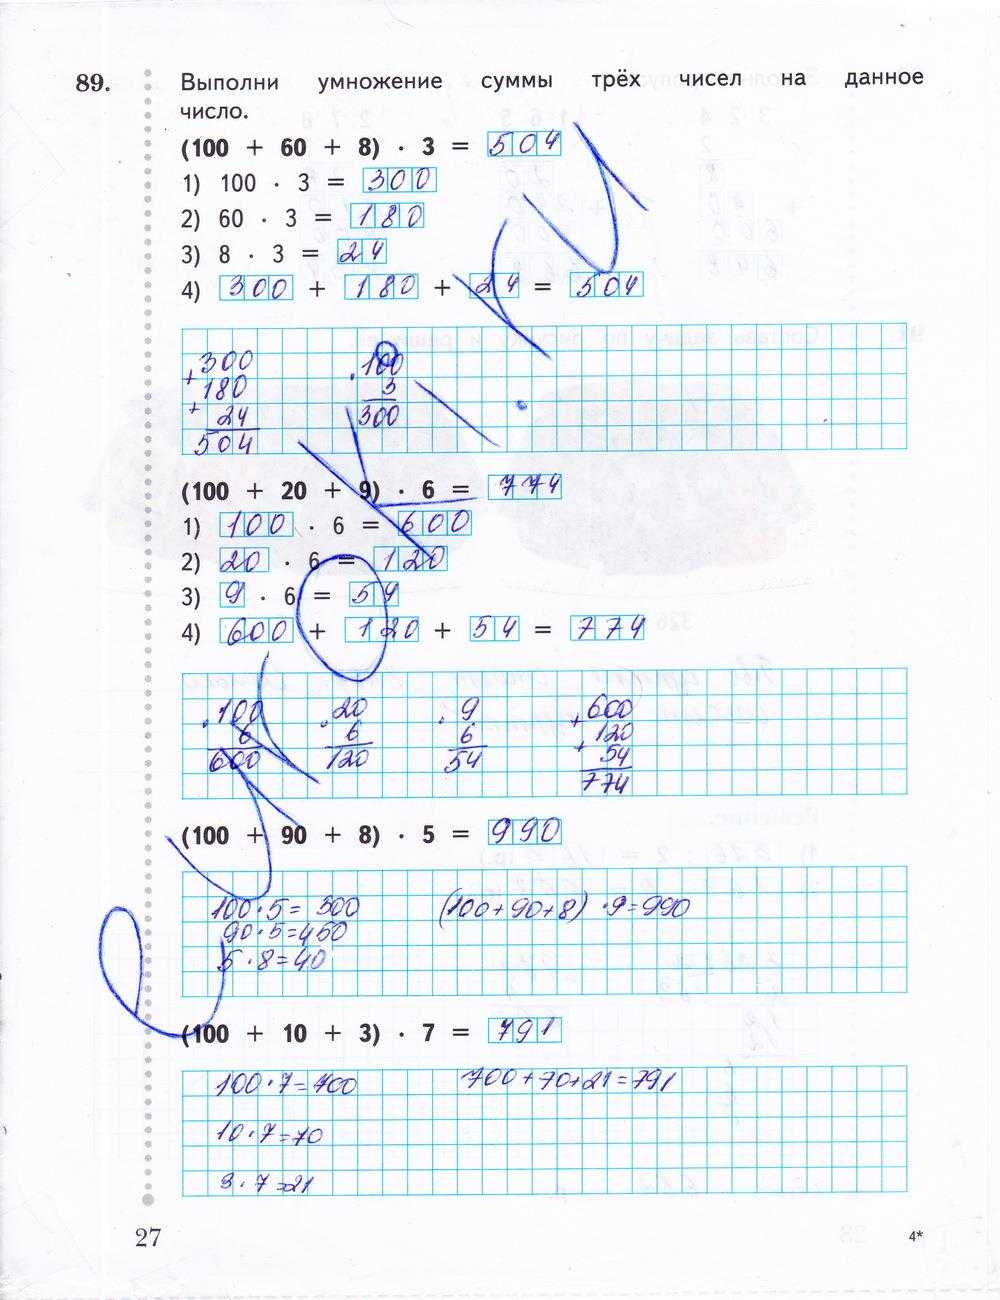 89. Выполни умножение суммы трёх чисел на данное
число.
(100 + 60 + 8) · 3 = 504
1) 100 · 3 = 300
2) 60 · 3 = 180
3) 8 · 3 = 24
4) 300 + 180 + 24 = 504
300 100
+ 180 · 3
+ 24 300
504
(100 + 20 + 9) · 6 = 774
1) 100 · 6 = 600
2) 20 · 6 = 120
3) 9 · 6 = 54
4) 600 + 120 + 54 = 774
· 100 · 20 · 9 + 600
6 6 6 + 120
600 120 54 54
774
(100 + 90 + 8) · 5 = 990
100·5= 500 (100+90+8) ·9=990
90·5=450
5·8=40
(100 + 10 + 3) · 7 = 791
100·7=700 700+70+21=791
10·7=70
3·7=21
27 4*